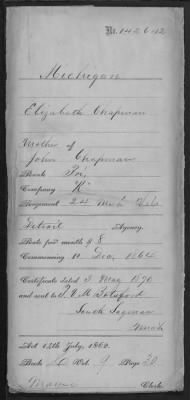 No. 142642
Michigan
Elizabeth Chapman
Mother of
John Chapman
Rank Pri.
Company "K"
Regiment 24 Mich Vols
Detroit Agency.
Rate per month $ 8
Commencing 10 Dec, 1864
Certificate dated 3 May 1870
and sent to
South Saginaw
Mich
Act 14th July, 1862.
Book Vol. 9 Page 30
Clerk.